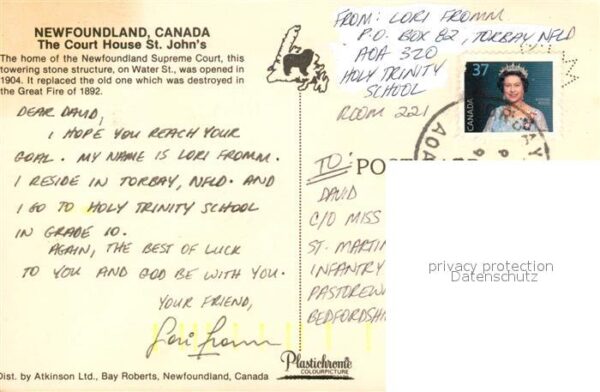 NEWFOUNDLAND, CANADA
The Court House St. John's
The home of the Newfoundland Supreme Court, this
towering stone structure, on Water St., was opened in
1904. It replaced the old one which was destroyed in
the Great Fire of 1892.
DEAR DAVID,
I HOPE YOU REACH YOUR
GOAL. MY NAME IS LORI FROMM.
I RESIDE IN TORBAY, NFLD. AND
I GO TO HOLY TRINITY SCHOOL
IN GRADE 10.
AGAIN, THE BEST OF LUCK
TO YOU AND GOD BE WITH YOU.
YOUR FRIEND,
Lori Fromm
Dist. by Atkinson Ltd., Bay Roberts, Newfoundland, Canada
Plastichrome
COLOURPICTURE
FROM: LORI FROMM
P.O. BOX 82, TORBAY NFLD
A0A 3Z0
HOLY TRINITY
SCHOOL
ROOM 221
37
CANADA
A0A
TO:
DAVID
C/O MISS
ST. MARTIN
INFANTRY
PASTOREW
BEDFORDSH
privacy protection
Datenschutz